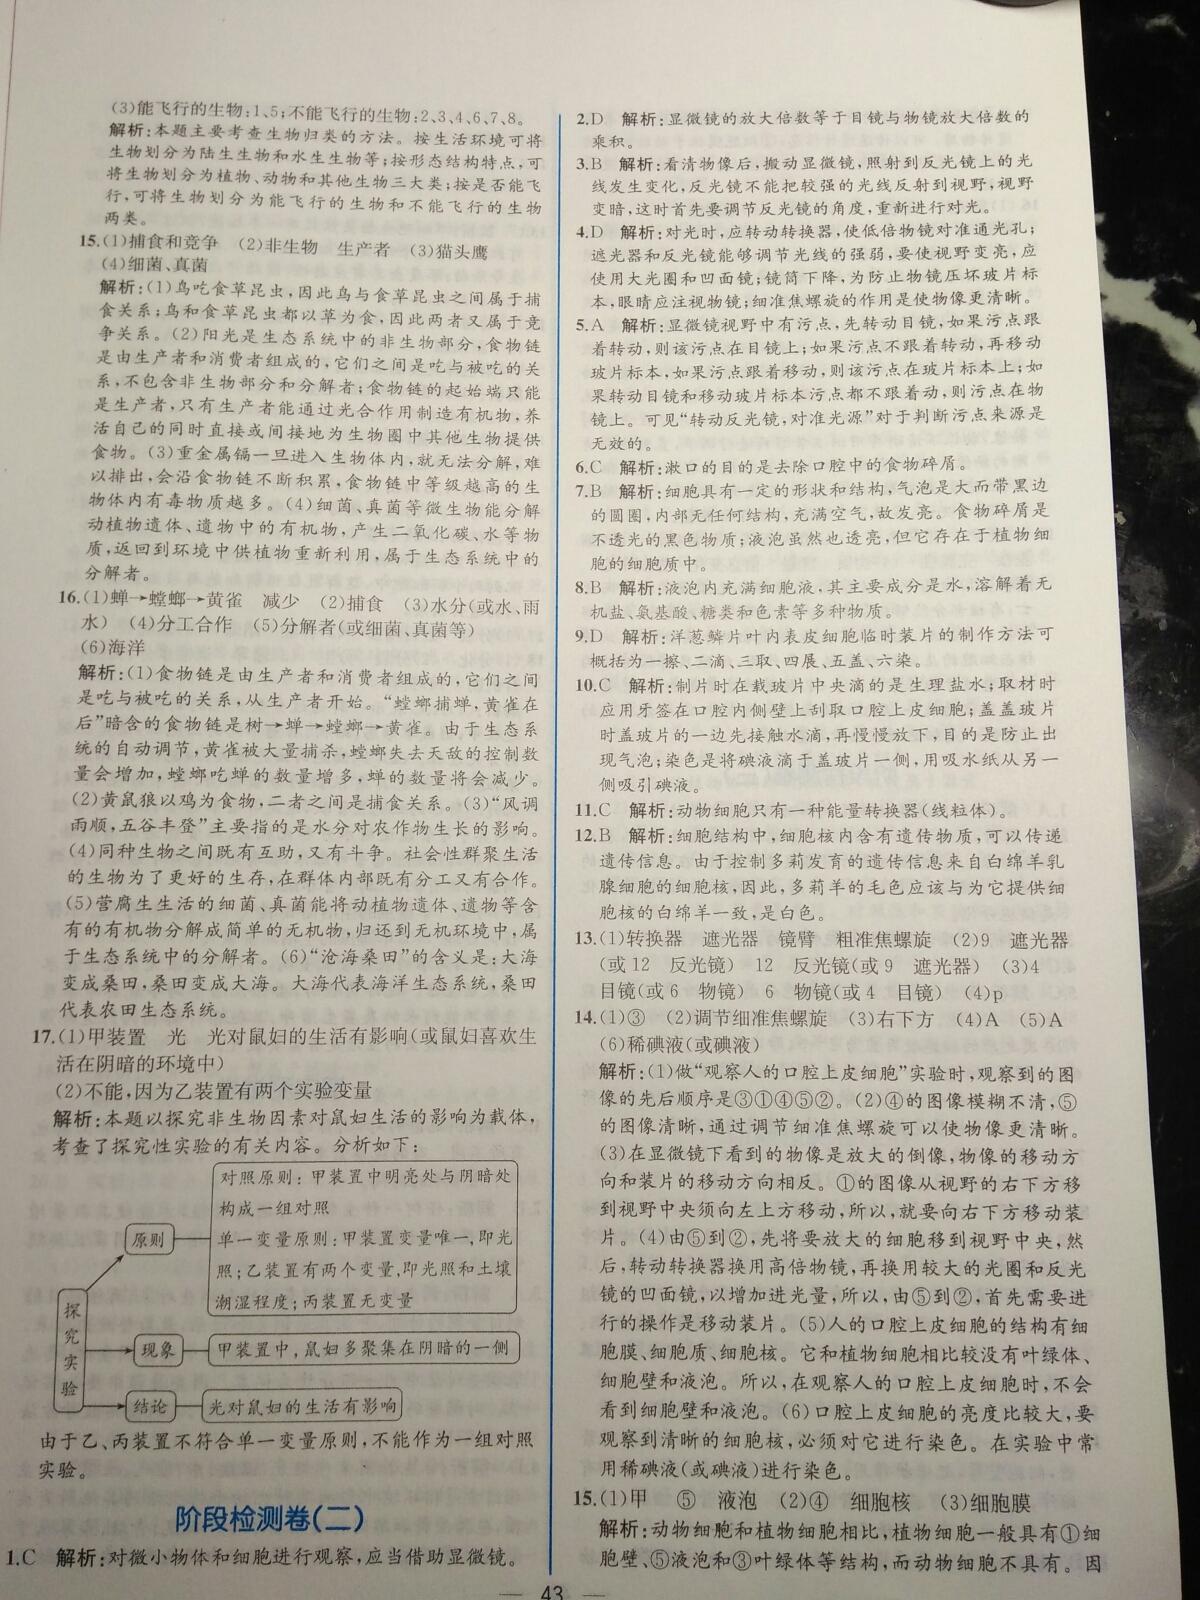 (3)能飞行的生物:1、5;不能飞行的生物:2、3、4、6、7、8。
解析:本题主要考查生物归类的方法。按生活环境可将
生物划分为陆生生物和水生生物等;按形态结构特点,可
将生物划分为植物、动物和其他生物三大类;按是否能飞
行,可将生物划分为能飞行的生物和不能飞行的生物
两类。
15.(1)捕食和竞争 (2)非生物 生产者 (3)猫头鹰
(4)细菌、真菌
解析:(1)鸟吃食草昆虫,因此鸟与食草昆虫之间属于捕
食关系;鸟和食草昆虫都以草为食,因此两者又属于竞
争关系。(2)阳光是生态系统中的非生物部分,食物链
是由生产者和消费者组成的,它们之间是吃与被吃的关
系,不包含非生物部分和分解者;食物链的起始端只能
是生产者,只有生产者能通过光合作用制造有机物,养
活自己的同时直接或间接地为生物圈中其他生物提供
食物。(3)重金属镉一旦进入生物体内,就无法分解,难
以排出,会沿食物链不断积累,食物链中等级越高的生
物体内有毒物质越多。(4)细菌、真菌等微生物能分解
动植物遗体、遗物中的有机物,产生二氧化碳、水等物
质,返回到环境中供植物重新利用,属于生态系统中的
分解者。
16.(1)蝉→螳螂→黄雀 减少 (2)捕食 (3)水分(或水、雨
水) (4)分工合作 (5)分解者(或细菌、真菌等)
(6)海洋
解析:(1)食物链是由生产者和消费者组成的,它们之间
是吃与被吃的关系,从生产者开始。“螳螂捕蝉,黄雀在
后”暗含的食物链是树→蝉→螳螂→黄雀。由于生态系
统的自动调节,黄雀被大量捕杀,螳螂失去天敌的控制数
量会增加,螳螂吃蝉的数量增多,蝉的数量将会减少。
(2)黄鼠狼以鸡为食物,二者之间是捕食关系。(3)“风调
雨顺,五谷丰登”主要指的是水分对农作物生长的影响。
(4)同种生物之间既有互助,又有斗争。社会性群聚生活
的生物为了更好的生存,在群体内部既有分工又有合作。
(5)营腐生生活的细菌、真菌能将动植物遗体、遗物等含
有的有机物分解成简单的无机物,归还到无机环境中,属
于生态系统中的分解者。(6)“沧海桑田”的含义是:大海
变成桑田,桑田变成大海。大海代表海洋生态系统,桑田
代表农田生态系统。
17.(1)甲装置 光 光对鼠妇的生活有影响(或鼠妇喜欢生
活在阴暗的环境中)
(2)不能,因为乙装置有两个实验变量
解析:本题以探究非生物因素对鼠妇生活的影响为载体,
考查了探究性实验的有关内容。分析如下:
探究实验
原则
对照原则:甲装置中明亮处与阴暗处
构成一组对照
单一变量原则:甲装置变量唯一,即光
照;乙装置有两个变量,即光照和土壤
潮湿程度;丙装置无变量
现象
甲装置中,鼠妇多聚集在阴暗的一侧
结论
光对鼠妇的生活有影响
由于乙、丙装置不符合单一变量原则,不能作为一组对照
实验。
阶段检测卷(二)
1.C 解析:对微小物体和细胞进行观察,应当借助显微镜。
2.D 解析:显微镜的放大倍数等于目镜与物镜放大倍数的
乘积。
3.B 解析:看清物像后,搬动显微镜,照射到反光镜上的光
线发生变化,反光镜不能把较强的光线反射到视野,视野
变暗,这时首先要调节反光镜的角度,重新进行对光。
4.D 解析:对光时,应转动转换器,使低倍物镜对准通光孔;
遮光器和反光镜能够调节光线的强弱,要使视野变亮,应
使用大光圈和凹面镜;镜筒下降,为防止物镜压坏玻片标
本,眼睛应注视物镜;细准焦螺旋的作用是使物像更清晰。
5.A 解析:显微镜视野中有污点,先转动目镜,如果污点跟
着转动,则该污点在目镜上;如果污点不跟着转动,再移动
玻片标本,如果污点跟着移动,则该污点在玻片标本上;如
果转动目镜和移动玻片标本污点都不跟着动,则污点在物
镜上。可见“转动反光镜,对准光源”对于判断污点来源是
无效的。
6.C 解析:漱口的目的是去除口腔中的食物碎屑。
7.B 解析:细胞具有一定的形状和结构,气泡是大而带黑边
的圆圈,内部无任何结构,充满空气,故发亮。食物碎屑是
不透光的黑色物质;液泡虽然也透亮,但它存在于植物细
胞的细胞质中。
8.B 解析:液泡内充满细胞液,其主要成分是水,溶解着无
机盐、氨基酸、糖类和色素等多种物质。
9.D 解析:洋葱鳞片叶内表皮细胞临时装片的制作方法可
概括为一擦、二滴、三取、四展、五盖、六染。
10.C 解析:制片时在载玻片中央滴的是生理盐水;取材时
应用牙签在口腔内侧壁上刮取口腔上皮细胞;盖盖玻片
时盖玻片的一边先接触水滴,再慢慢放下,目的是防止出
现气泡;染色是将碘液滴于盖玻片一侧,用吸水纸从另一
侧吸引碘液。
11.C 解析:动物细胞只有一种能量转换器(线粒体)。
12.B 解析:细胞结构中,细胞核内含有遗传物质,可以传递
遗传信息。由于控制多莉发育的遗传信息来自白绵羊乳
腺细胞的细胞核,因此,多莉羊的毛色应该与为它提供细
胞核的白绵羊一致,是白色。
13.(1)转换器 遮光器 镜臂 粗准焦螺旋 (2)9 遮光器
(或12 反光镜) 12 反光镜(或9 遮光器) (3)4
目镜(或6 物镜) 6 物镜(或4 目镜) (4)p
14.(1)③ (2)调节细准焦螺旋 (3)右下方 (4)A (5)A
(6)稀碘液(或碘液)
解析:(1)做“观察人的口腔上皮细胞”实验时,观察到的图
像的先后顺序是③①④⑤②。(2)④的图像模糊不清,⑤
的图像清晰,通过调节细准焦螺旋可以使物像更清晰。
(3)在显微镜下看到的物像是放大的倒像,物像的移动方
向和装片的移动方向相反。①的图像从视野的右下方移
到视野中央须向左上方移动,所以,就要向右下方移动装
片。(4)由⑤到②,先将要放大的细胞移到视野中央,然
后,转动转换器换用高倍物镜,再换用较大的光圈和反光
镜的凹面镜,以增加进光量,所以,由⑤到②,首先需要进
行的操作是移动装片。(5)人的口腔上皮细胞的结构有细
胞膜、细胞质、细胞核。它和植物细胞相比较没有叶绿体、
细胞壁和液泡。所以,在观察人的口腔上皮细胞时,不会
看到细胞壁和液泡。(6)口腔上皮细胞的亮度比较大,要
观察到清晰的细胞核,必须对它进行染色。在实验中常
用稀碘液(或碘液)进行染色。
15.(1)甲 ⑤ 液泡 (2)④ 细胞核 (3)细胞膜
解析:动物细胞和植物细胞相比,植物细胞一般具有①细
胞壁、⑤液泡和③叶绿体等结构,而动物细胞不具有。因
— 43 —